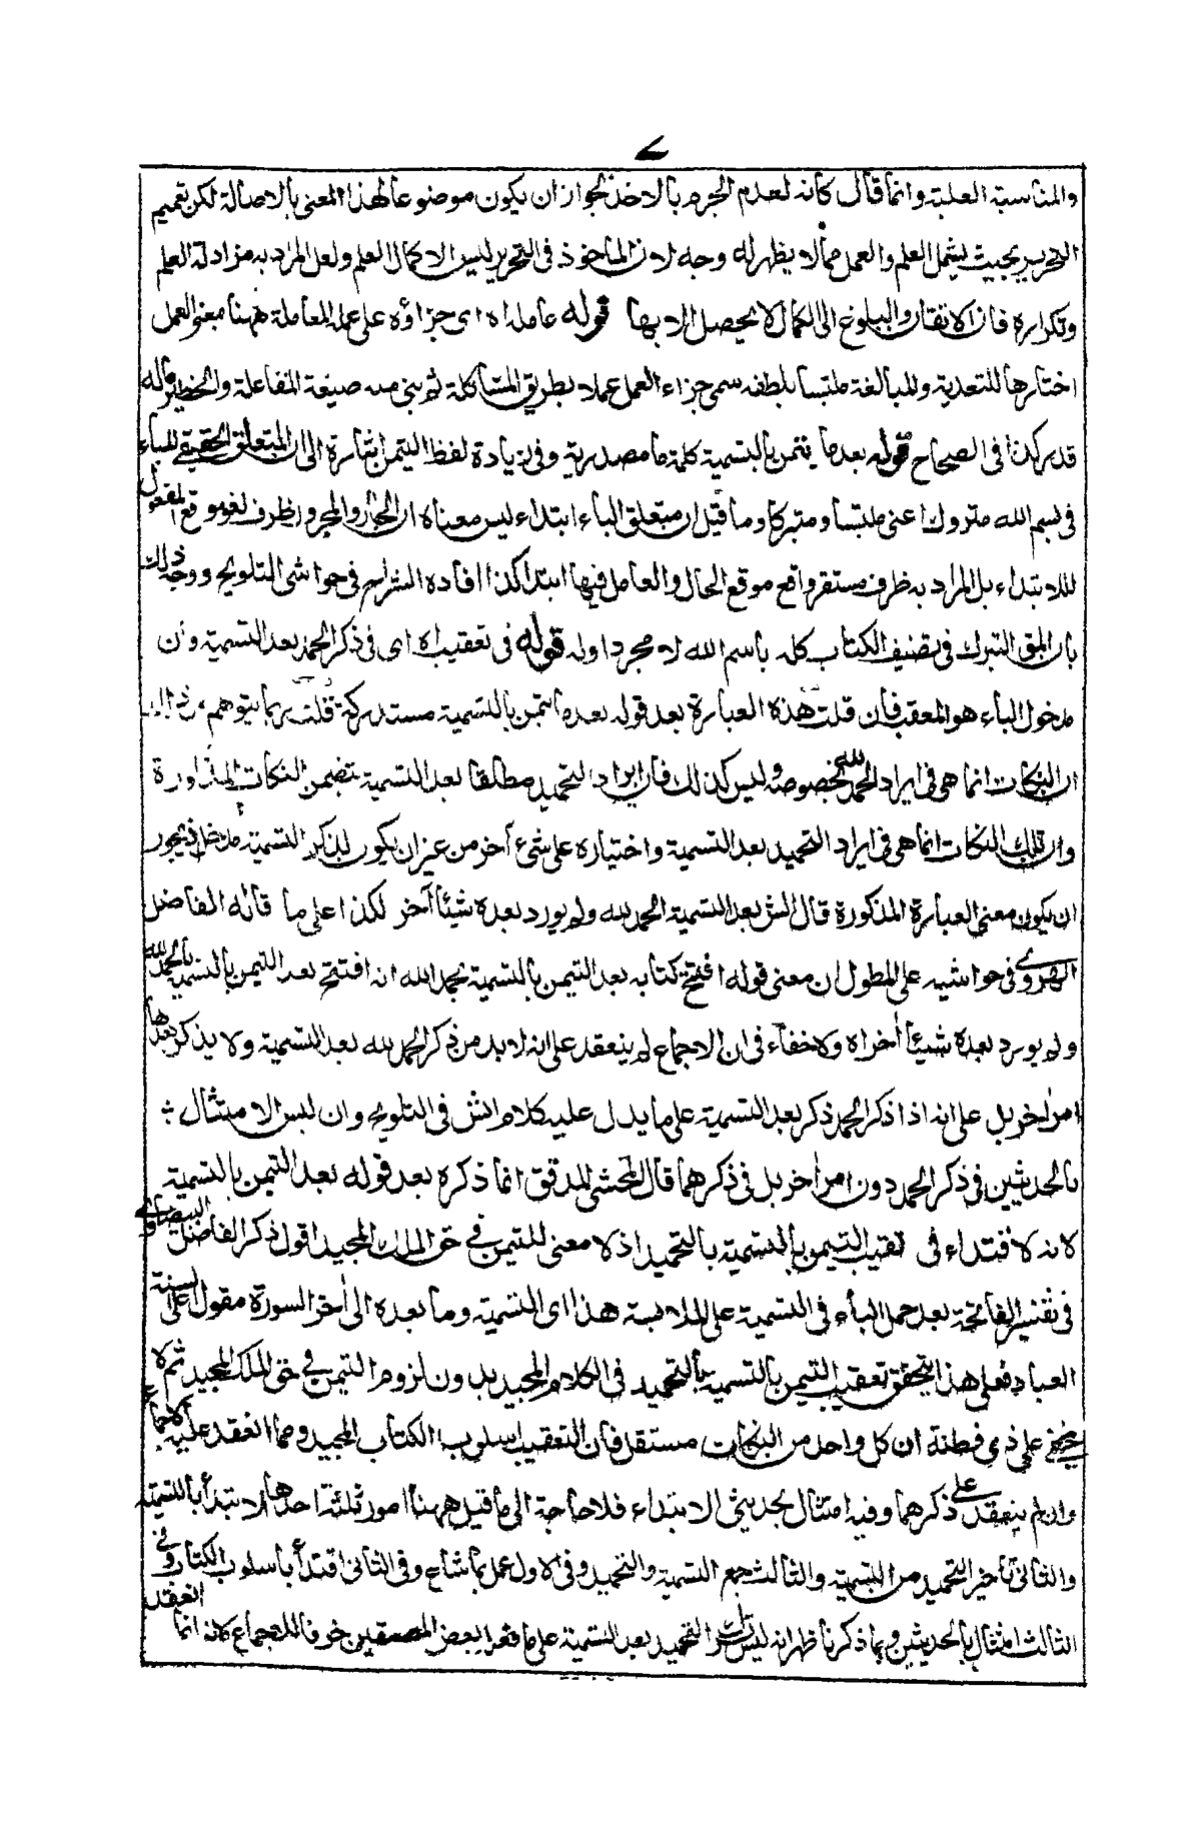 ٧
والمناسبة العلية وانما قال كانه لعدم الجزم بالاخذ لجواز ان يكون موضوعا لهذا المعنى بالاصالة لكن تعميم
التحرير بحيث يشمل العلم والعمل مما لا يظهر له وجه لان الماخوذ فى التحرير ليس الا كمال العلم ولعل المراد به مزاولة العلم
وتكراره فان الاتقان والبلوغ الى الكمال لا يحصل الا بها قوله عامله اه اى جزاؤه على عمله المعاملة ههنا بمعنى العمل
اختارها للتعدية وللمبالغة ملتبسا بلطفه سمى جزاء العمل عملا بطريق المشاكلة ثم بنى منه صيغة المفاعلة والخطير وله
قدر كذا فى الصحاح قوله بعد ما يتمن بالتسمية كلمة ما مصدرية وفى زيادة لفظ التيمن اشارة الى ان المتعلق الحقيقى للباء
فى بسم الله متروك اعنى ملتبسا ومتبركا وما قيل ان متعلق الباء ابتداء ليس معناه ان الجار والمجرور ظرف لغو موقع المفعول
للابتداء بل المراد به ظرف مستقر واقع موقع الحال والعامل فيها ابتدا كذا افاده الش رح فى حواشى التلويح ووجه ذلك
بان المق التبرك فى تصنيف الكتاب كله باسم الله لا مجرد اوله قوله فى تعقيب اه اى فى ذكر الحمد بعد التسمية وان
مدخول الباء هو المعقب فان قلت هذه العبارة بعد قوله بعد ما تيمن بالتسمية مستدركة قلت ربما يتوهم
ان النكات انما هى فى ايراد الحمد لله بخصوصه وليس كذلك فان ايراد التحميد مطلقا بعد التسمية يتضمن النكات المذكورة
وان تلك النكات انما هى فى ايراد التحميد بعد التسمية واختياره على شئ آخر من غير ان يكون لذكر التسمية مدخل فيجوز
ان يكون معنى العبارة المذكورة قال الش بعد التسمية الحمد لله ولم يورد بعده شيئا آخر لكذا على ما قاله الفاضل
الهروى فى حواشيه على المطول ان معنى قوله افتتح كتابه بعد التيمن بالتسمية بحمد الله انه افتتح بعد التيمن بالتسمية بالحمد لله
ولم يورد بعده شيئا آخر اه ولا خفاء فى ان الاجماع لم ينعقد على انه لا بد من ذكر الحمد لله بعد التسمية ولا يذكر بعدها
امر اخر بل على انه اذا ذكر الحمد ذكر بعد التسمية على ما يدل عليه كلام الش فى التلويح وان ليس الامتثال :
بالحديثين فى ذكر الحمد دون امر اخر بل فى ذكرهما قال المحشى المدقق انما ذكره بعد قوله بعد التيمن بالتسمية
لانه لا اقتداء فى تعقيب التيمن بالتسمية بالتحميد اذ لا معنى للتيمن فى حق الملك المجيد اقول ذكر الفاضل البيضاوى
فى تفسير الفاتحة بعد حمل الباء فى التسمية على الملابسة هذا اى التسمية وما بعده الى آخر السورة مقول على السنة
العباد فعلى هذا يتحقق تعقيب التيمن بالتسمية بالتحميد فى الكلام المجيد بدون لزوم التيمن فى حق الملك المجيد ثم لا
يخفى على ذى فطنة ان كل واحد من النكات مستقل فان التعقيب اسلوب الكتاب المجيد ومما انعقد عليه الاجماع
وان لم ينعقد على ذكرهما وفيه امتثال بحديثى الابتداء فلا حاجة الى ما قيل ههنا امور ثلثة احدها الابتداء بالتسمية
والثانى تاخير التحميد من التسمية والثالث جمع التسمية والتحميد وفى الاول عمل بما شاع وفى الثانى اقتداء باسلوب الكتاب وفى
الثالث امتثال بالحديثين وبما ذكرنا ظهر انه ليس ترك التحميد بعد التسمية على ما فعل بعض المصنفين خرقا للاجماع كانه انما انعقد